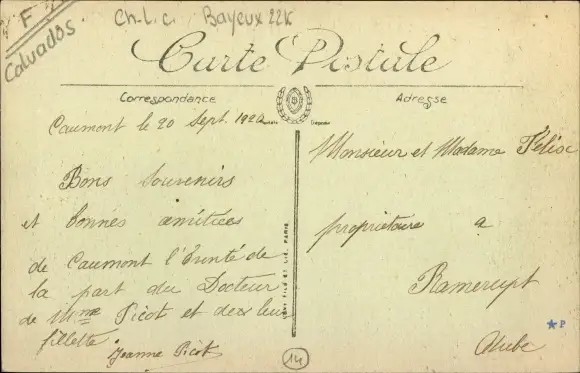 F
Calvados.
Ch-l.c. Bayeux 22K
Carte Postale
Correspondance
Adresse
Caumont le 20 Sept. 1920
Bons Souvenirs
et bonnes amitiées
de Caumont l'Eventé de
la part du Docteur
de Mme Picot et de leur
fillette
Jeanne Picot
Monsieur et Madame Félix
propriétaire a
Ramerupt
Aube
LEVY FILS ET CIE, PARIS
14
P